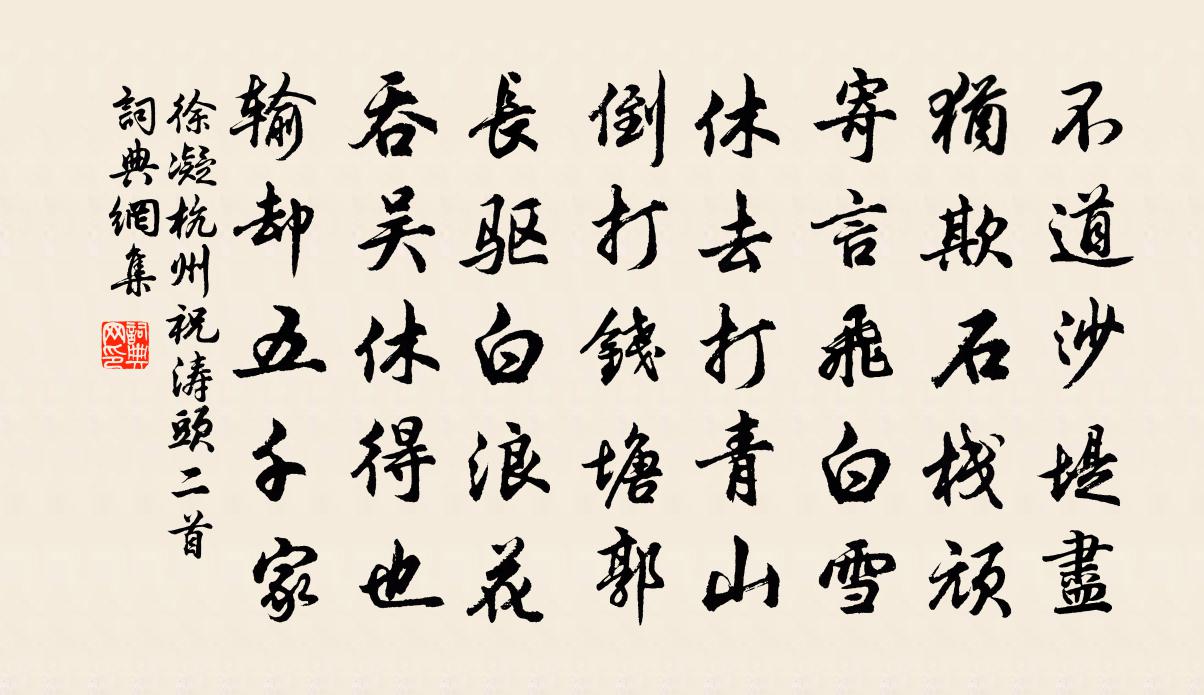 不道沙堤盡
猶欺石栈頑
寄言飛白雪
休去打青山
倒打錢塘郭
長驱白浪花
吞吴休得也
输却五千家
徐凝杭州祝涛頭二首
詞典網集
詞典网印